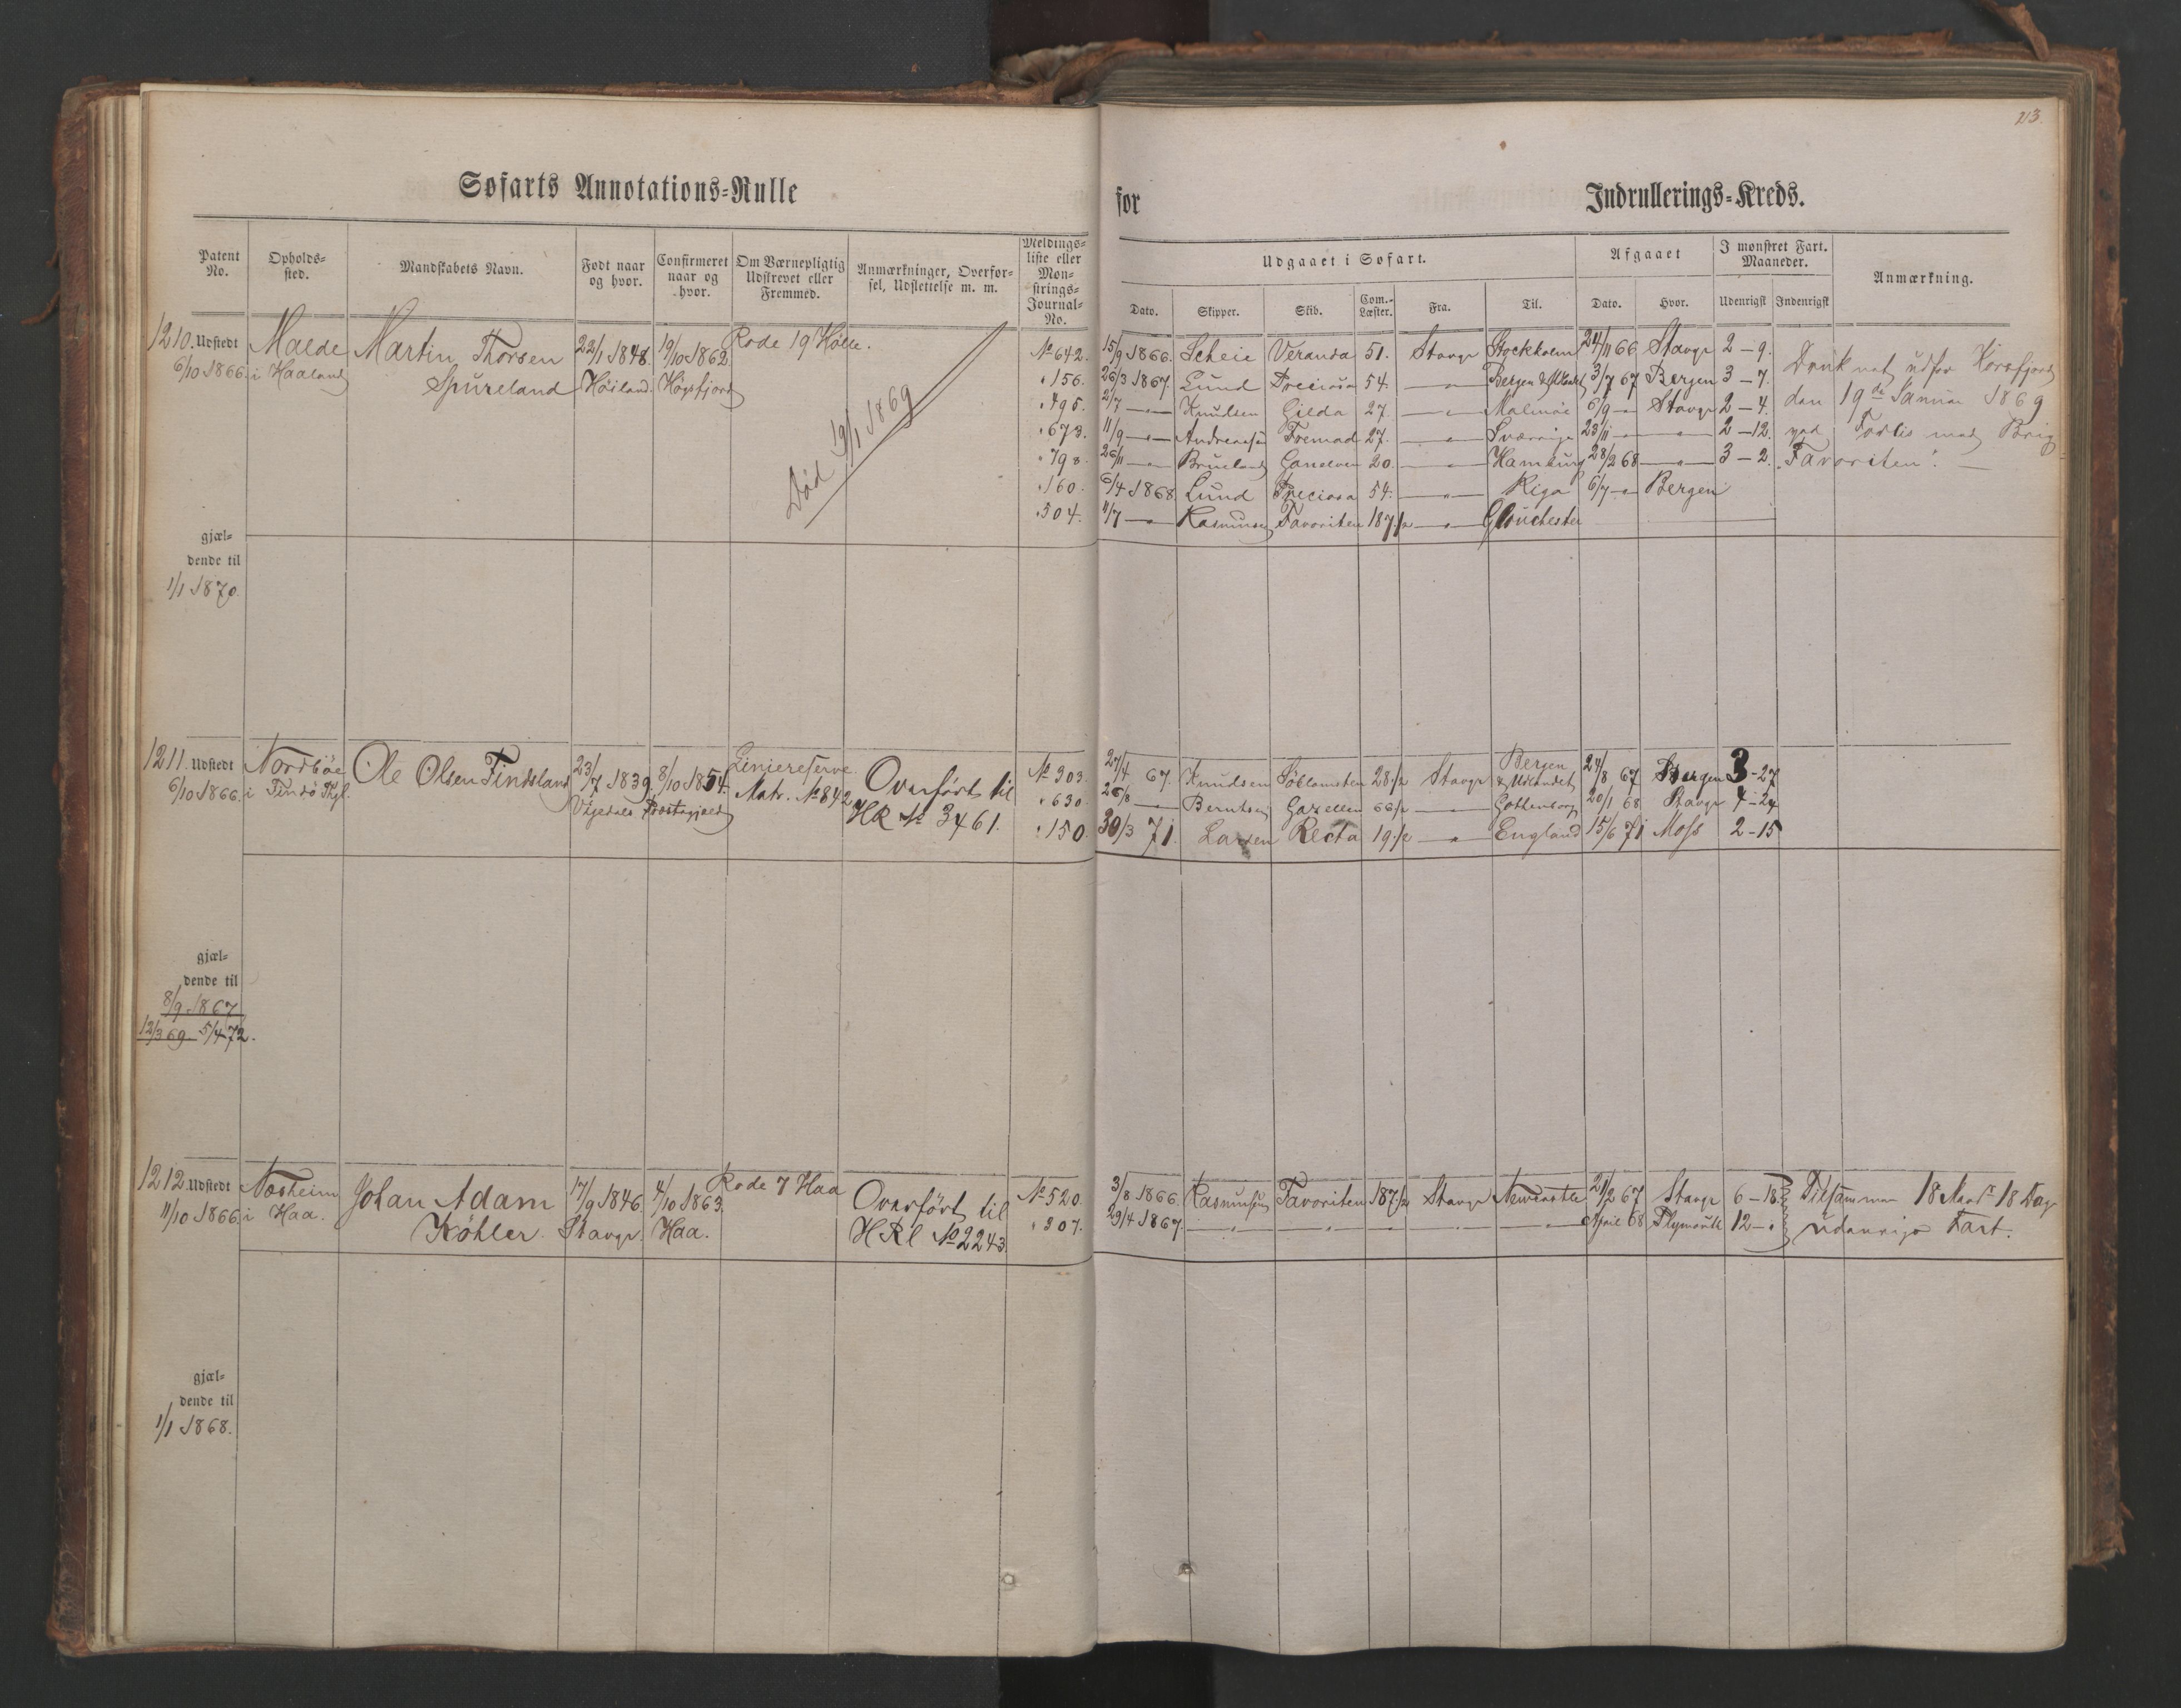 213.
Søfarts Annotations-Rulle
for Indrullerings-Kreds.
Patent No.
Opholds-sted.
Mandskabets Navn.
Født naar og hvor.
Confirmeret naar og hvor.
Om Værnepligtig Udskrevet eller Fremmed.
Anmærkninger, Overfør-sel, Udslettelse m. m.
Meldings-liste eller Møn-strings-Journal-No.
Udgaaet i Søfart.
Dato. Skipper. Skib. Com.-Læster. Fra. Til.
Afgaaet
Dato. Hvor.
I mønstret Fart. Maaneder.
Udenrigsk Indenrigsk
Anmærkning.
1210. Udstedt Malde Martin Thorsen 22/1 1848. 19/10 1862. Rode 19 Hølle.
6/10 1866. i Haaland Spureland Höiland. Högsfjord
Död 19/1 1869
No 642. 15/9 1866. Scheie Veranda 51. Stavgr Stockholm 24/11 66 Stavgr 2-9.
" 156. 26/3 1867. Lund Preciosa 54. —"— Bergen & Udlandet 3/7 67 Bergen 3-7.
" 495. 2/7 —"— Knudsen Gilda 27. —"— Malmöe 6/9 —"— Stavgr 2-4.
" 673. 11/9 —"— Andreassen Fremad 27. —"— Sverrige 23/11 —"— —"— 2-12.
" 798. 26/11 —"— Brueland 20. —"— Hamburg 28/2 68 —"— 3-2.
" 160. 6/4 1868 Lund Preciosa 54. —"— Riga 6/7 —"— Bergen
" 304. 11/7 —"— Rasmussen Favoriten 187 1/2 —"— Glouchester
Druknet udfor Korsfjord
den 19de Januar 1869
ved Forlis med Brig
"Favoriten".
gjæl-
dende til
1/1 1870.
1211. Udstedt Nordböe Ole Olsen Findsland 23/7 1839. 8/10 1854. Liniereserve
6/10 1866. i Findö Vigedals Præstegjæld Matr. No 842
Overført til
HR No 3461.
No 303. 27/4 67. Knudsen Söblomsten 28 1/2 Stavgr Bergen & Udlandet 24/8 67 Bergen 3-27
" 630. 26/8 —"— Berntsen Gazellen 66 1/2 —"— Gothenborg 20/1 68 Stavgr 4-24
" 150. 30/3 71. Larsen Recta 19 1/2 —"— England 15/6 71 Moss 2-15
gjæl-
dende til
8/9 1867
12/3 69. 5/4 72.
1212. Udstedt Nærheim Johan Adam 17/9 1846. 4/10 1863. Rode 7 Haa
11/10 1866. i Haa. Köhler. Stavgr. Haa.
Overført til
HRl No 2243.
No 520. 3/8 1866. Rasmussen Favoriten 187 1/2 Stavgr Newcastle 21/2 67 Stavgr 6-18
" 307. 29/4 1867. —"— —"— —"— —"— —"— April 68 Plymouth 12-"
Tilsammen 18 Maandr 18 Dage
udenrigs Fart.
gjæl-
dende til
1/1 1868.